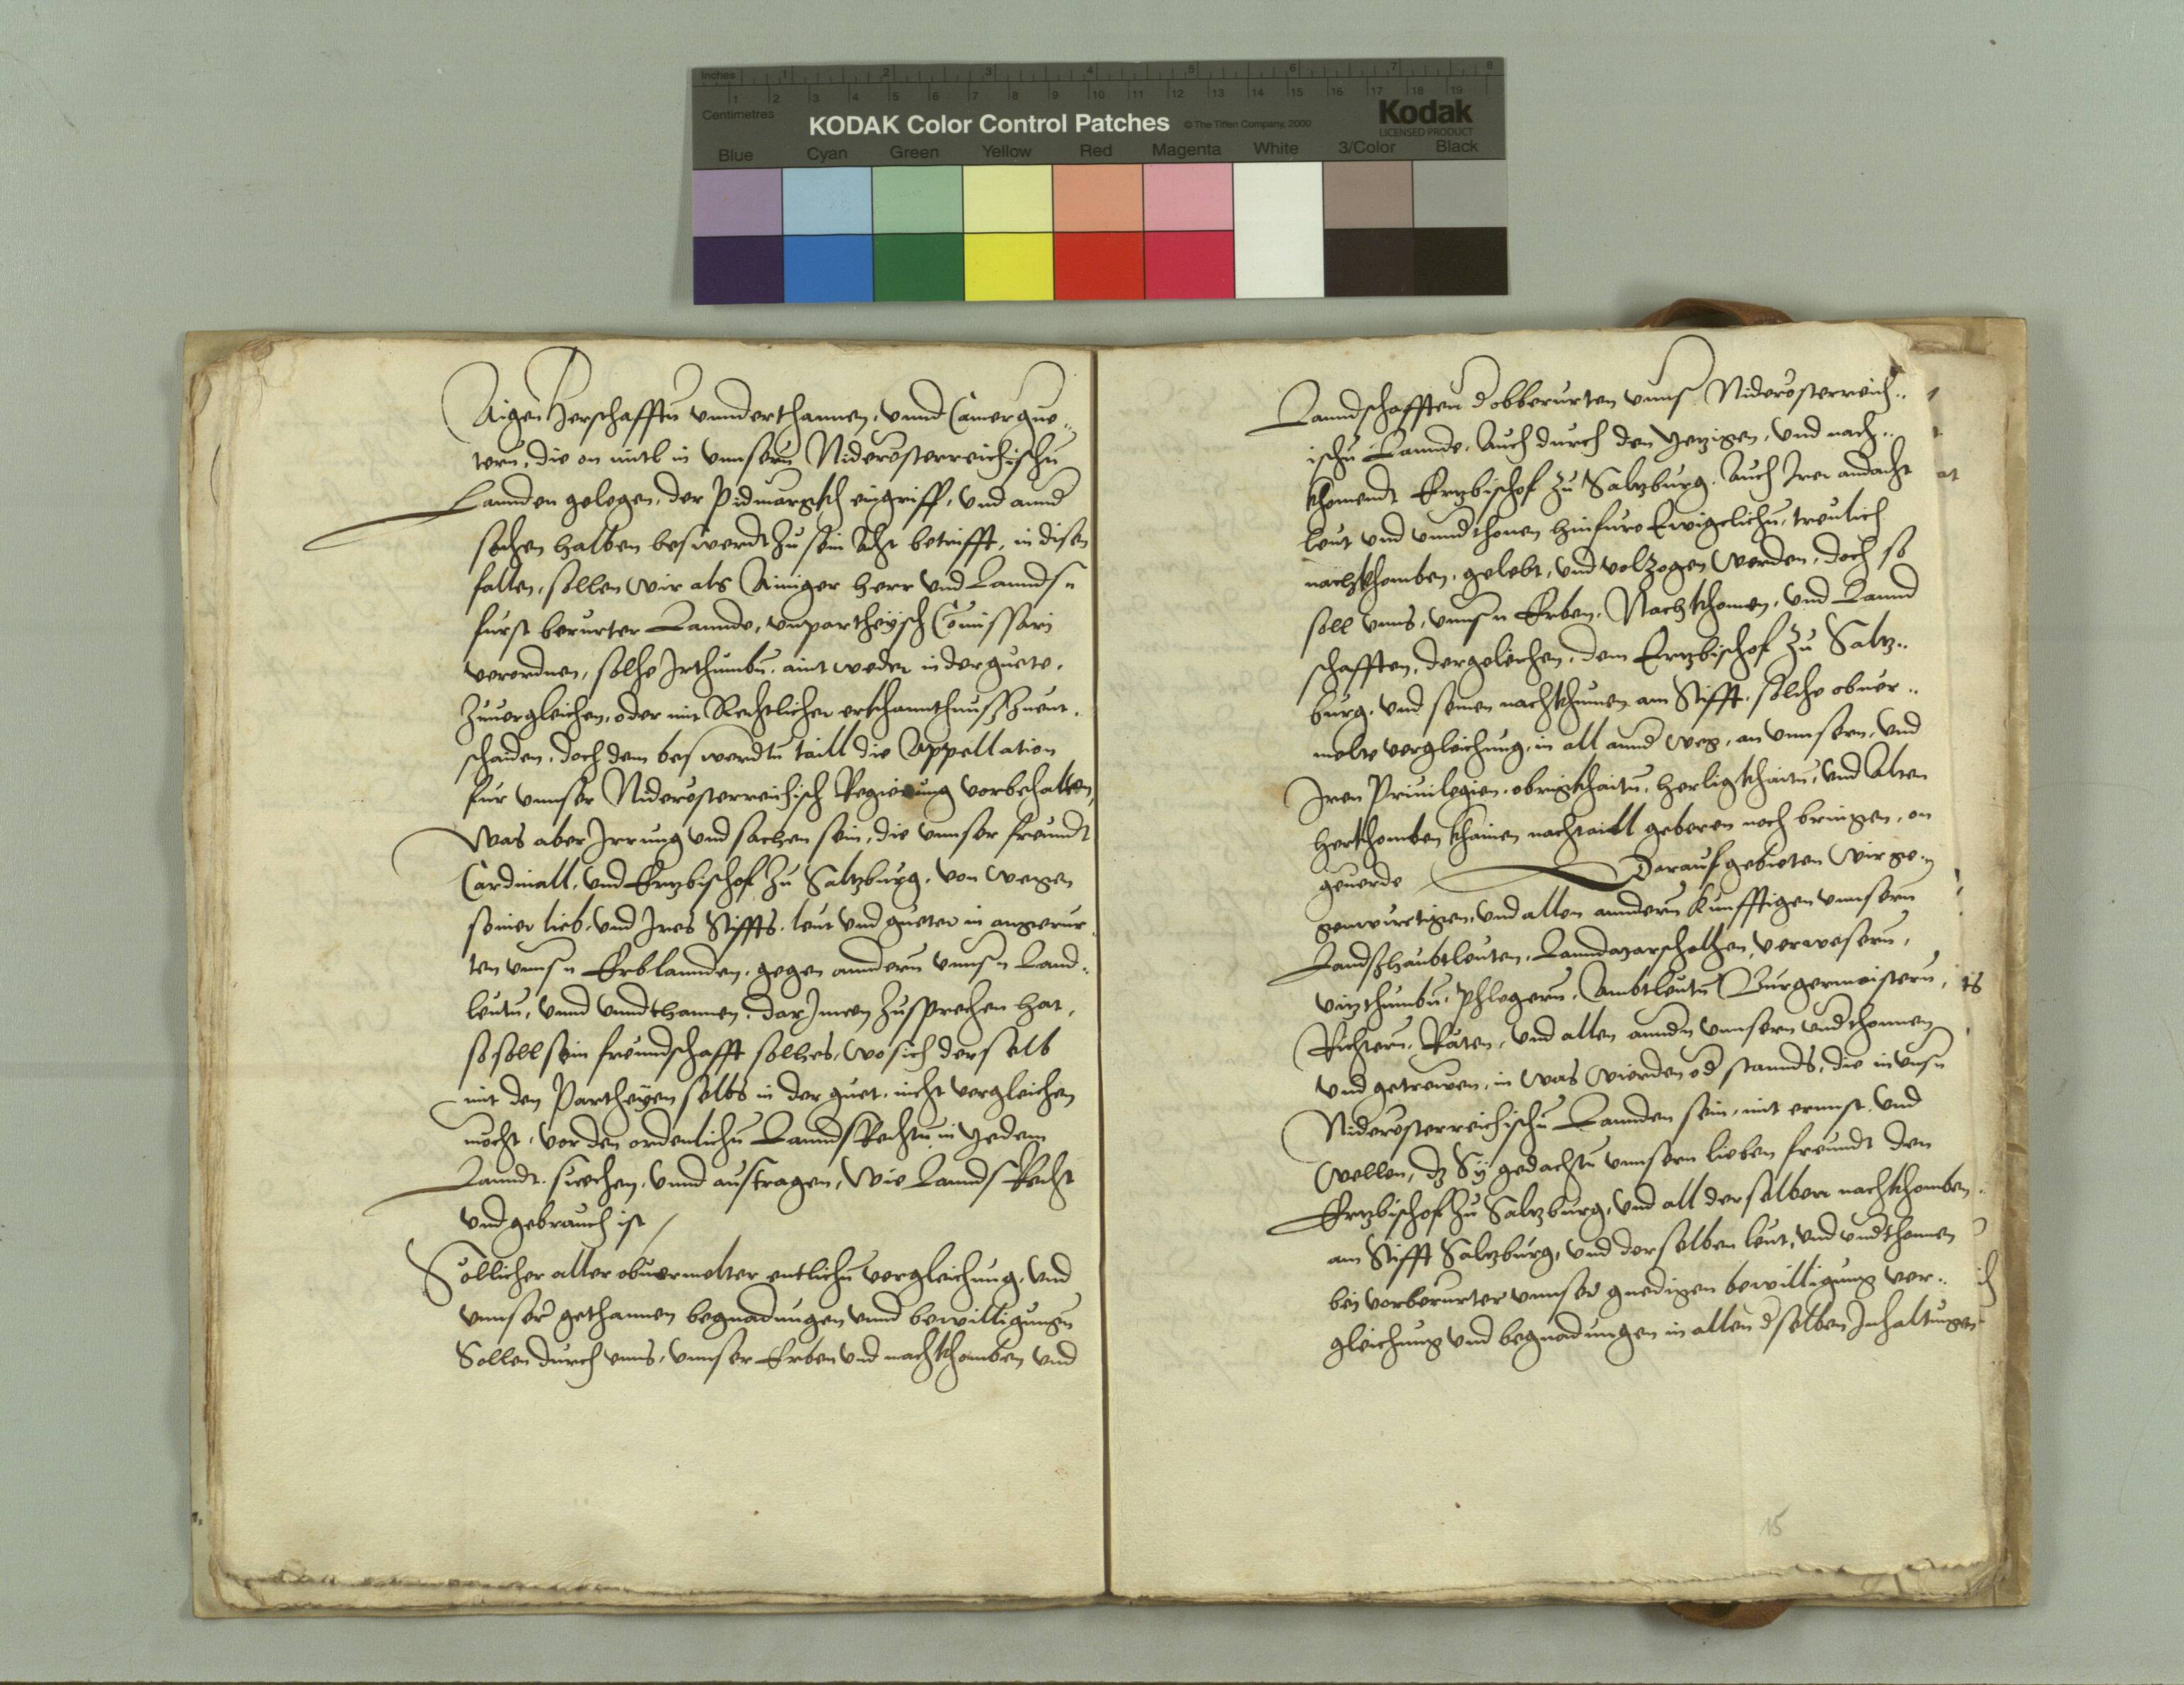 Inches 1 2 3 4 5 6 7 8
1 2 3 4 5 6 7 8 9 10 11 12 13 14 15 16 17 18 19
Centimetres
KODAK Color Control Patches © The Tiffen Company, 2000 Kodak
LICENSED PRODUCT
Blue Cyan Green Yellow Red Magenta White 3/Color Black
Aigen Herschafften vnnderthannen, vnnd Camerguo..
tern, die on mitl in vnnsern Niderösterreichischn
Lannden gelegen, der Pidmargkh eingriff, vnd annd
sachen halben beswerdt zu sein betrifft, in disen
fallen, sollen wir als Ainiger Herr vnd Lannds
furst berurter Lannde, vnpartheÿsch Comissari
verordnen, solhe Irthumbn, aintweder in der guete,
Zuuergleichen, oder mit Rechtlicher erkhanntnuss zuent.
schaiden, doch dem beswerdtn taill die Appellation
fur vnnser Niderösterreichisch Regierung vorbehalten,
Was aber Irrung vnd sachen sein, die vnnser freundt
Cardinall, vnd Ertzbischof zu Saltzburg, von wegen
seiner lieb, vnd Ires Stiffts, leut vnd gueter in angerur
ten vnnsn Erblannden, gegen anndern vnnsn Land..
leutn, vnnd vnndthannen, dar Innen zusprechen hat,
so soll sein freundschafft solhes, wo sich derselb
mit den Partheÿen selbs in der guet, nicht vergleichen
mocht, vor den ordenlichn Lannds Rechtn in yedem
Lanndt, suechen, vnnd austragen, wie Lannds Recht
vnd gebrauch ist /
Söllicher aller obuermelter entlichn vergleichung, vnd
vnnser gethannen begnadungen vnnd bewilligungn
Sollen durch vnns, vnnser Erben vnd nachkhomben vnd
Lanndschafften d obberurten vnns Niderösterreich..
ischn Lannde, Auch durch den yetzigen, vnd nach..
khomendt Ertzbischof zu Saltzburg, Auch Irer andacht
leut vnd vnndthonen hinfuro Ewigclichn, treulich
nachkhomben, gelebt, vnd volzogen werden, doch so
soll vnns, vnnsn Erben, Nachkhomen, vnd Lannd
schafften, dergeleichen, dem Ertzbischof zu Saltz..
burg, vnd seinen nachkhumen am Stifft, solche obuer..
melte vergleichung, in all annd weg, an vnnsern, vnd
Iren Priuilegien, obrigkhaitn, herligkhaitn, vnd Alten
herkhomben khainen nachtaill geberen noch bringen, on
geuerde Darauf gebieten wir ge..
genwurtigen, vnd allen anndern kunfftigen vnnsern
Landshaubtleuten, Lanndmarschalhen, verwesern,
vitzthumbn, phlegern, Ambtleutn Burgermaistern,
Richtern, Räten, vnd allen anndn vnnsern vndthonnen
vnd getrewen, in was wierden od stannds, die in vnsn
Niderösterreichischn Lannden sein, mit ernnst, vnd
wellen, dz Sÿ gedachtn vnnsern lieben freundt den
Ertzbischof zu Saltzburg, vnd all derselben nachkhomben
am Stifft Saltzburg, vnd derselben leut, vnd vndthonen
bei vorberurter vnnser gnedigen bewilligung ver..
gleichung vnd begnadungen in allen dselben Inhaltungen
15